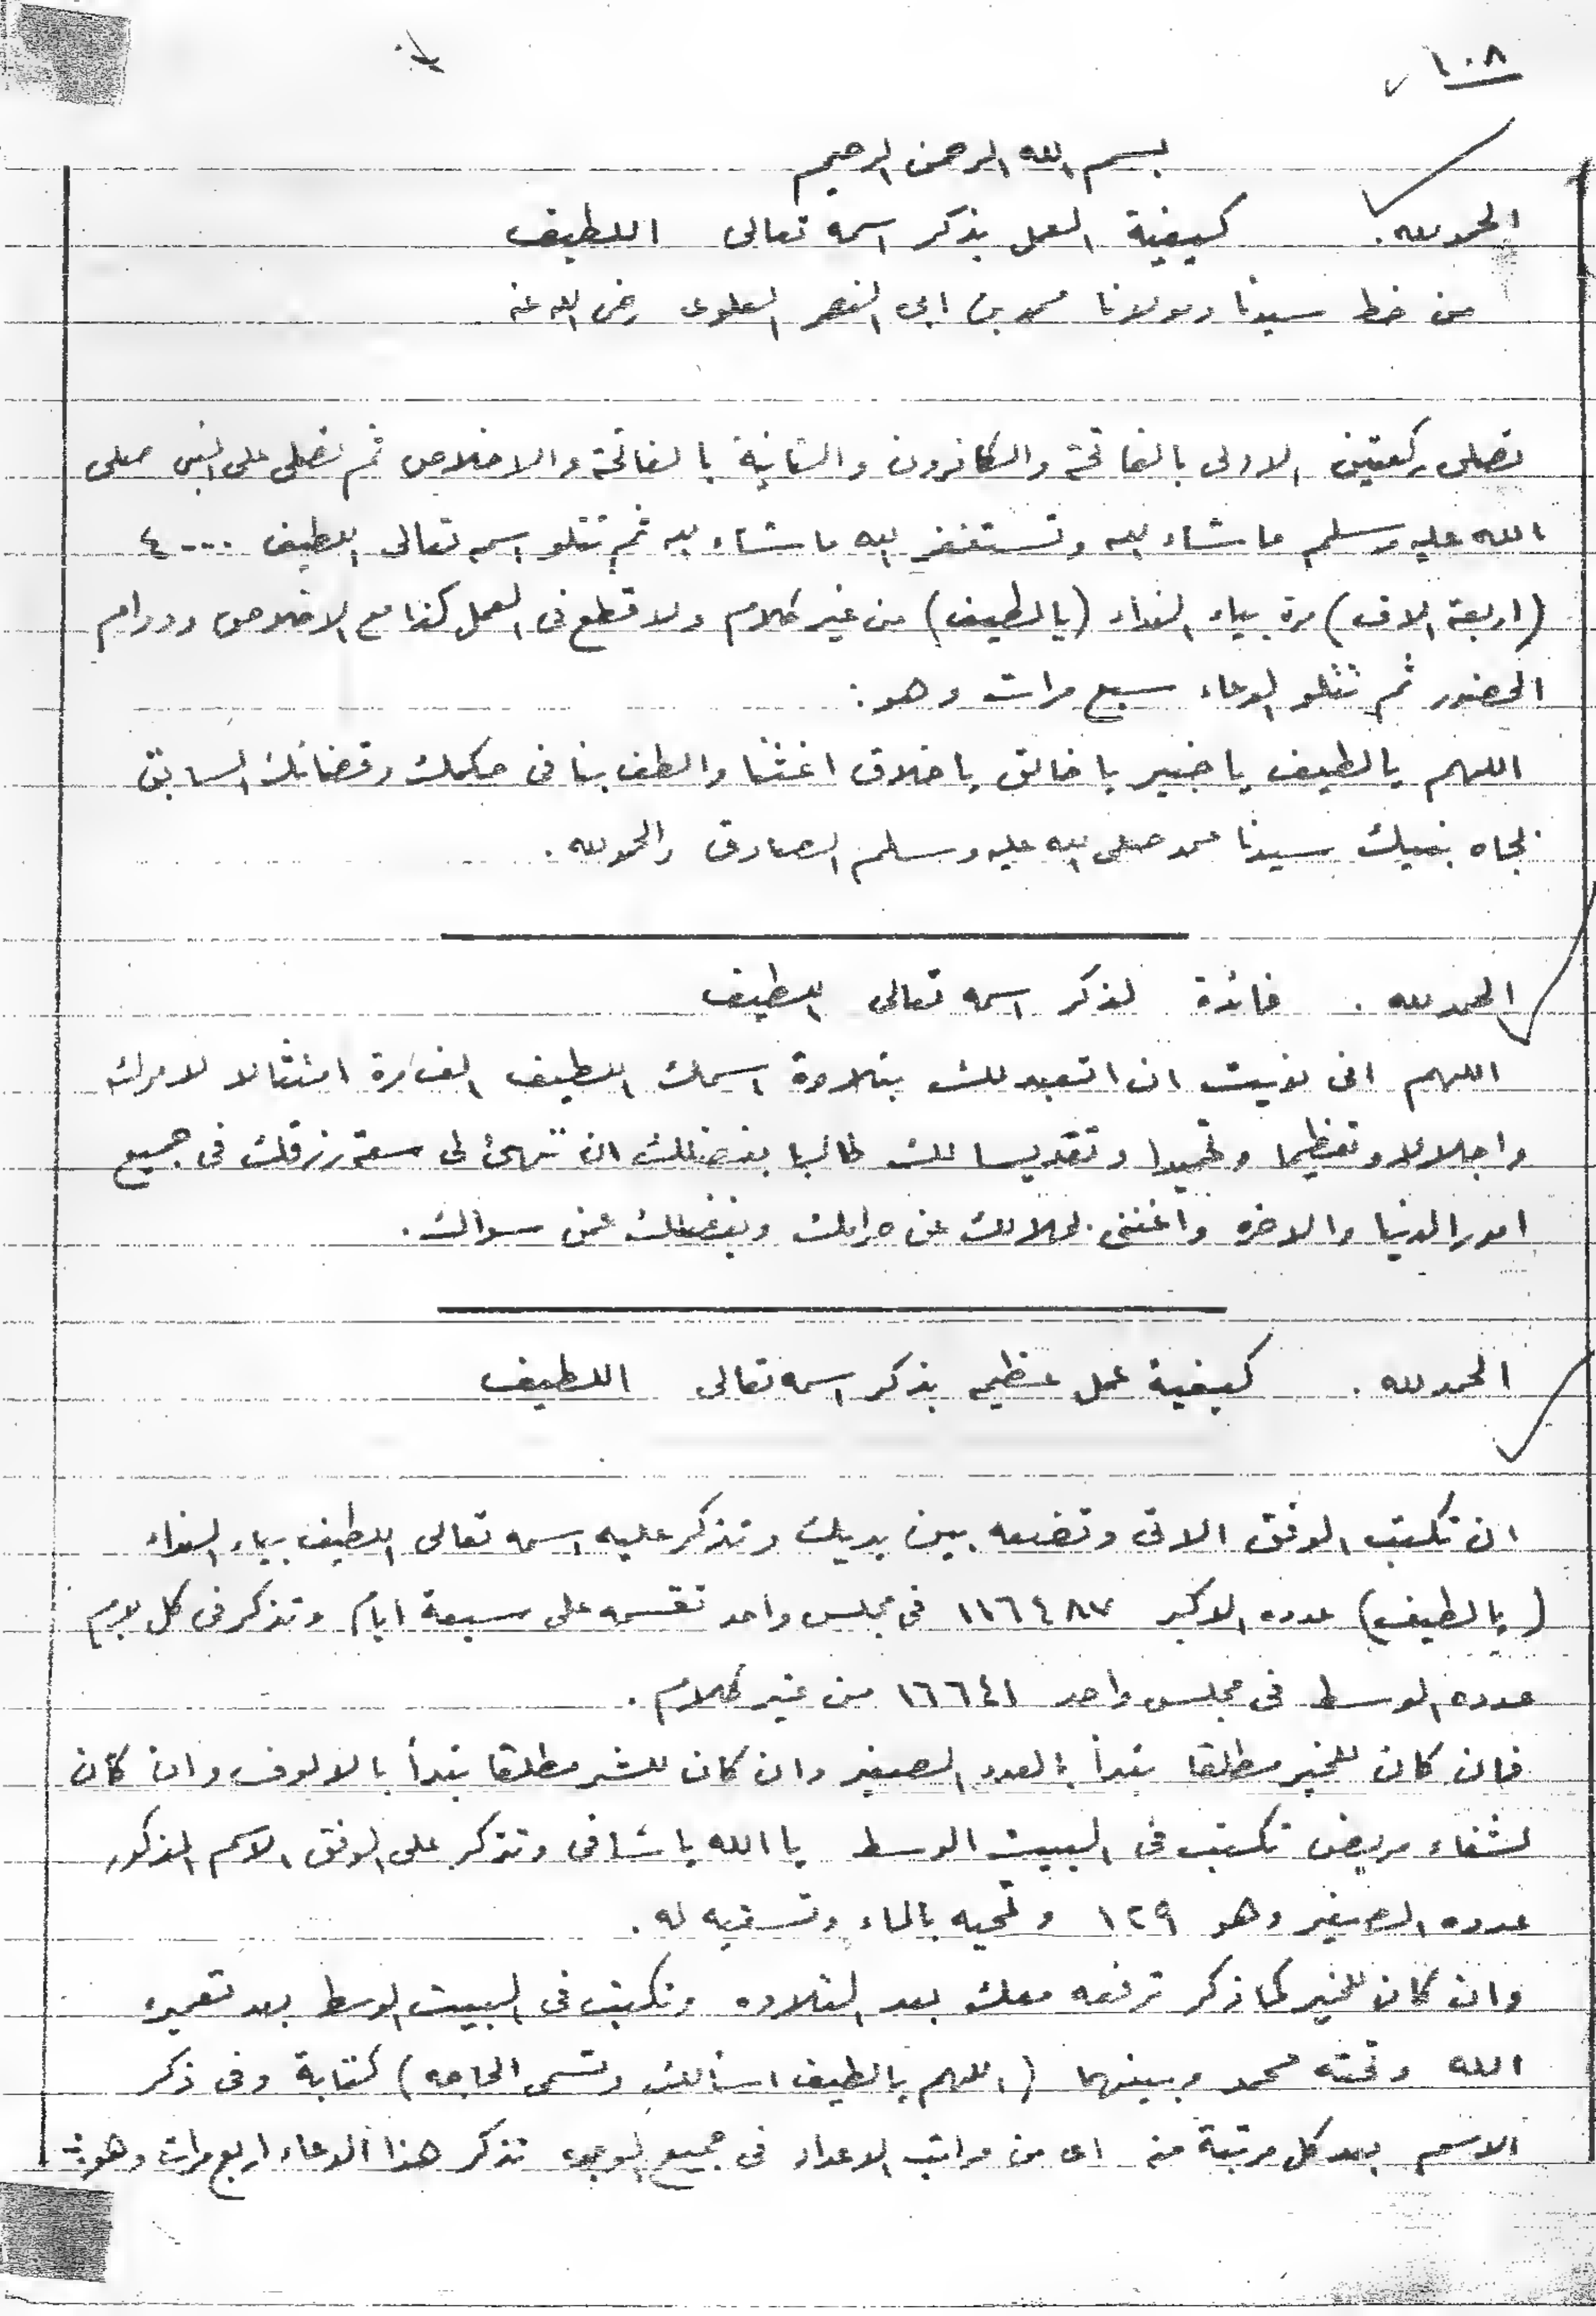 ١٠٨
بسم الله الرحمن الرحيم
الحمد لله . كيفية العمل بذكر اسمه تعالى اللطيف
من خط سيدنا ومولانا محمد بن ابى النصر العلوى رضى الله عنه
تصلى ركعتين الاولى بالفاتحة والكافرون والثانية بالفاتحة والاخلاص ثم تصلى على النبى صلى
الله عليه وسلم ما شاء الله وتستغفر الله ما شاء الله ثم تتلو اسمه تعالى اللطيف ٤٠٠٠
(اربعة الاف) مرة بياء النداء (يا لطيف) من غير كلام ولا قطع فى العمل كذا مع الاخلاص ودوام
الحضور ثم تتلو الدعاء سبع مرات وهو :
اللهم يا لطيف يا خبير يا خالق يا خلاق اغثنا والطف بنا فى حكمك وقضائك السابق
بجاه نبيك سيدنا محمد صلى الله عليه وسلم الصادق والحمد لله .
الحمد لله . فائدة لذكر اسمه تعالى اللطيف
اللهم انى نويت ان اتعبد لك بتلاوة اسمك اللطيف امتثالا لامرك
واجلالا وتعظيما وتحميدا وتقديسا لك طالبا بفضلك ان تهئ لى سعة رزقك فى جميع
امور الدنيا والاخره واغننى بحلالك عن حرامك وبفضلك عمن سواك .
الحمد لله . كيفية عمل عظيم بذكر اسمه تعالى اللطيف
ان تكتب الوفق الاتى وتضعه بين يديك وتذكر عليه اسمه تعالى اللطيف بياء النداء
(يا لطيف) عدده الاكبر ١١٦٤٨٧ فى مجلس واحد تقسمه على سبعة ايام وتذكر فى كل يوم
عدده الوسط فى مجلس واحد ١٦٦٤١ من غير كلام .
فان كان للخير مطلقا يبدأ بالعدد الصغير وان كان للشر مطلقا يبدأ بالالوف وان كان
لشفاء مريض تكتب فى البيت الوسط يا الله يا شافى وتذكر على الوفق الاسم المذكور
عدده الصغير وهو ١٢٩ وتمحيه بالماء وتسقيه له .
وان كان للخير كما ذكر ترفعه معك بعد التلاوه وتكتب فى البيت الوسط بعد تعميره
الله وتحته محمد وبينهما (اللهم يا لطيف اسألك وتسمى الحاجه) كتابة وفى ذكر
الاسم بعد كل مرتبة منه اى من مراتب الاعداد فى جميع الوجوه تذكر هذا الدعاء اربع مرات وهو :